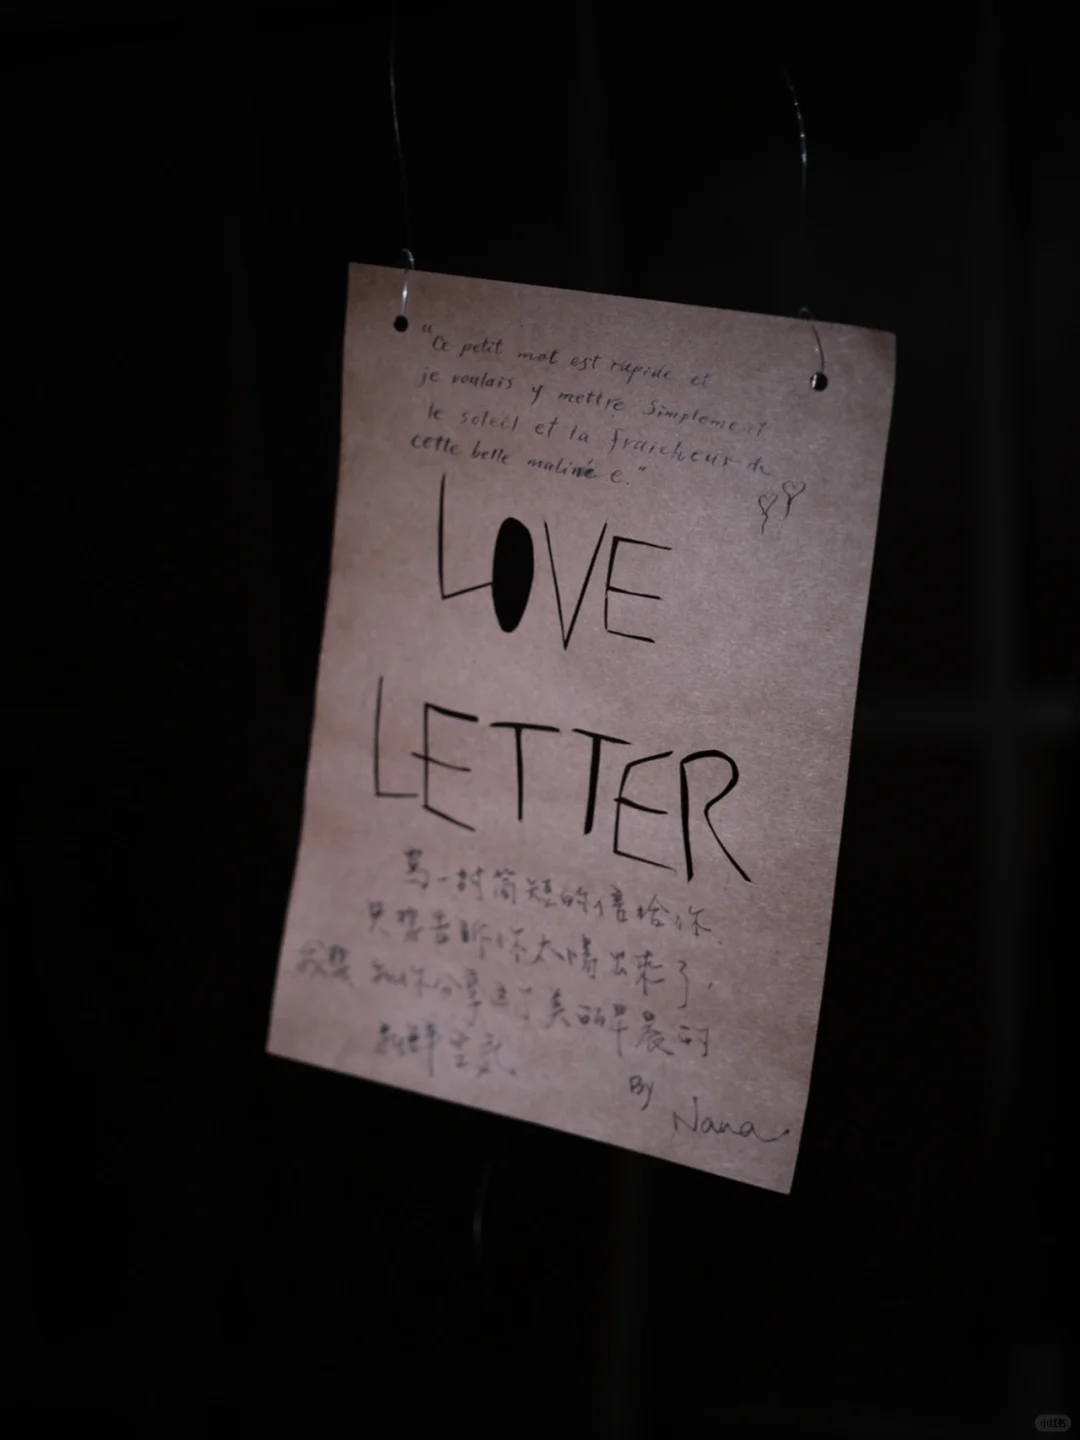 "Ce petit mot est rapide et
je voulais y mettre simplement
le soleil et la fraicheur de
cette belle matinée e."
LOVE
LETTER
写一封简短的信给你
只想告诉你太晴出来了,
我想和你分享这个美的早晨的
新鲜空气
By
Nana
小红书